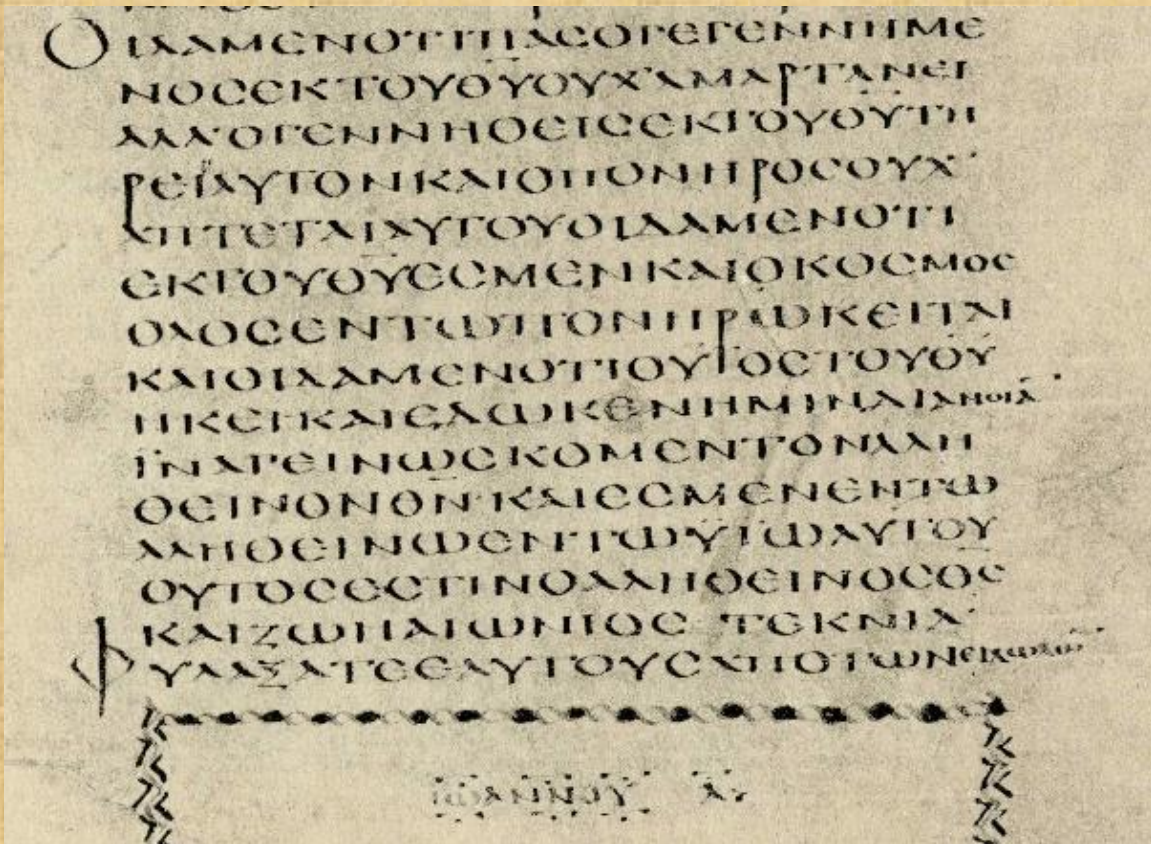 ΟΙΔΑΜΕΝΟΤΙΠΑϹΟΓΕΓΕΝΝΗΜΕ
ΝΟϹΕΚΤΟΥΘΥΟΥΧΑΜΑΡΤΑΝΕΙ
ΑΛΛΟΓΕΝΝΗΘΕΙϹΕΚΤΟΥΘΥΤΗ
ΡΕΙΑΥΤΟΝΚΑΙΟΠΟΝΗΡΟϹΟΥΧ
ΑΠΤΕΤΑΙΑΥΤΟΥΟΙΔΑΜΕΝΟΤΙ
ΕΚΤΟΥΘΥΕϹΜΕΝΚΑΙΟΚΟϹΜΟϹ
ΟΛΟϹΕΝΤΩΠΟΝΗΡΩΚΕΙΤΑΙ
ΚΑΙΟΙΔΑΜΕΝΟΤΙΟΥΙΟϹΤΟΥΘΥ
ΗΚΕΙΚΑΙΕΔΩΚΕΝΗΜΙΝΔΙΑΝΟΙΑ
ΪΝΑΓΕΙΝΩϹΚΟΜΕΝΤΟΝΑΛΗ
ΘΕΙΝΟΝΘΝ·ΚΑΙΕϹΜΕΝΕΝΤΩ
ΑΛΗΘΕΙΝΩΕΝΤΩΥΙΩΑΥΤΟΥ
ΟΥΤΟϹΕϹΤΙΝΟΑΛΗΘΕΙΝΟϹΘϹ
ΚΑΙΖΩΗΑΙΩΝΙΟϹ ΤΕΚΝΙΑ
ΦΥΛΑΞΑΤΕΕΑΥΤΟΥϹΑΠΟΤΩΝΕΙΔΩΛΩΝ
ΙΩΑΝΝΟΥ Α